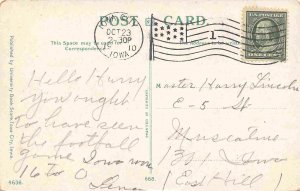 POST CARD
This Space may be used for Correspondence
OCT 23
2-30P
10
IOWA
1
Published by University Book Store, Iowa City, Iowa.
Hello Harry
You ought
to have seen
the football
game Iowa won
16 to 0
Lena
Master Harry Lincoln
E - 5 St
Muscatine
Iowa
(East Hill)